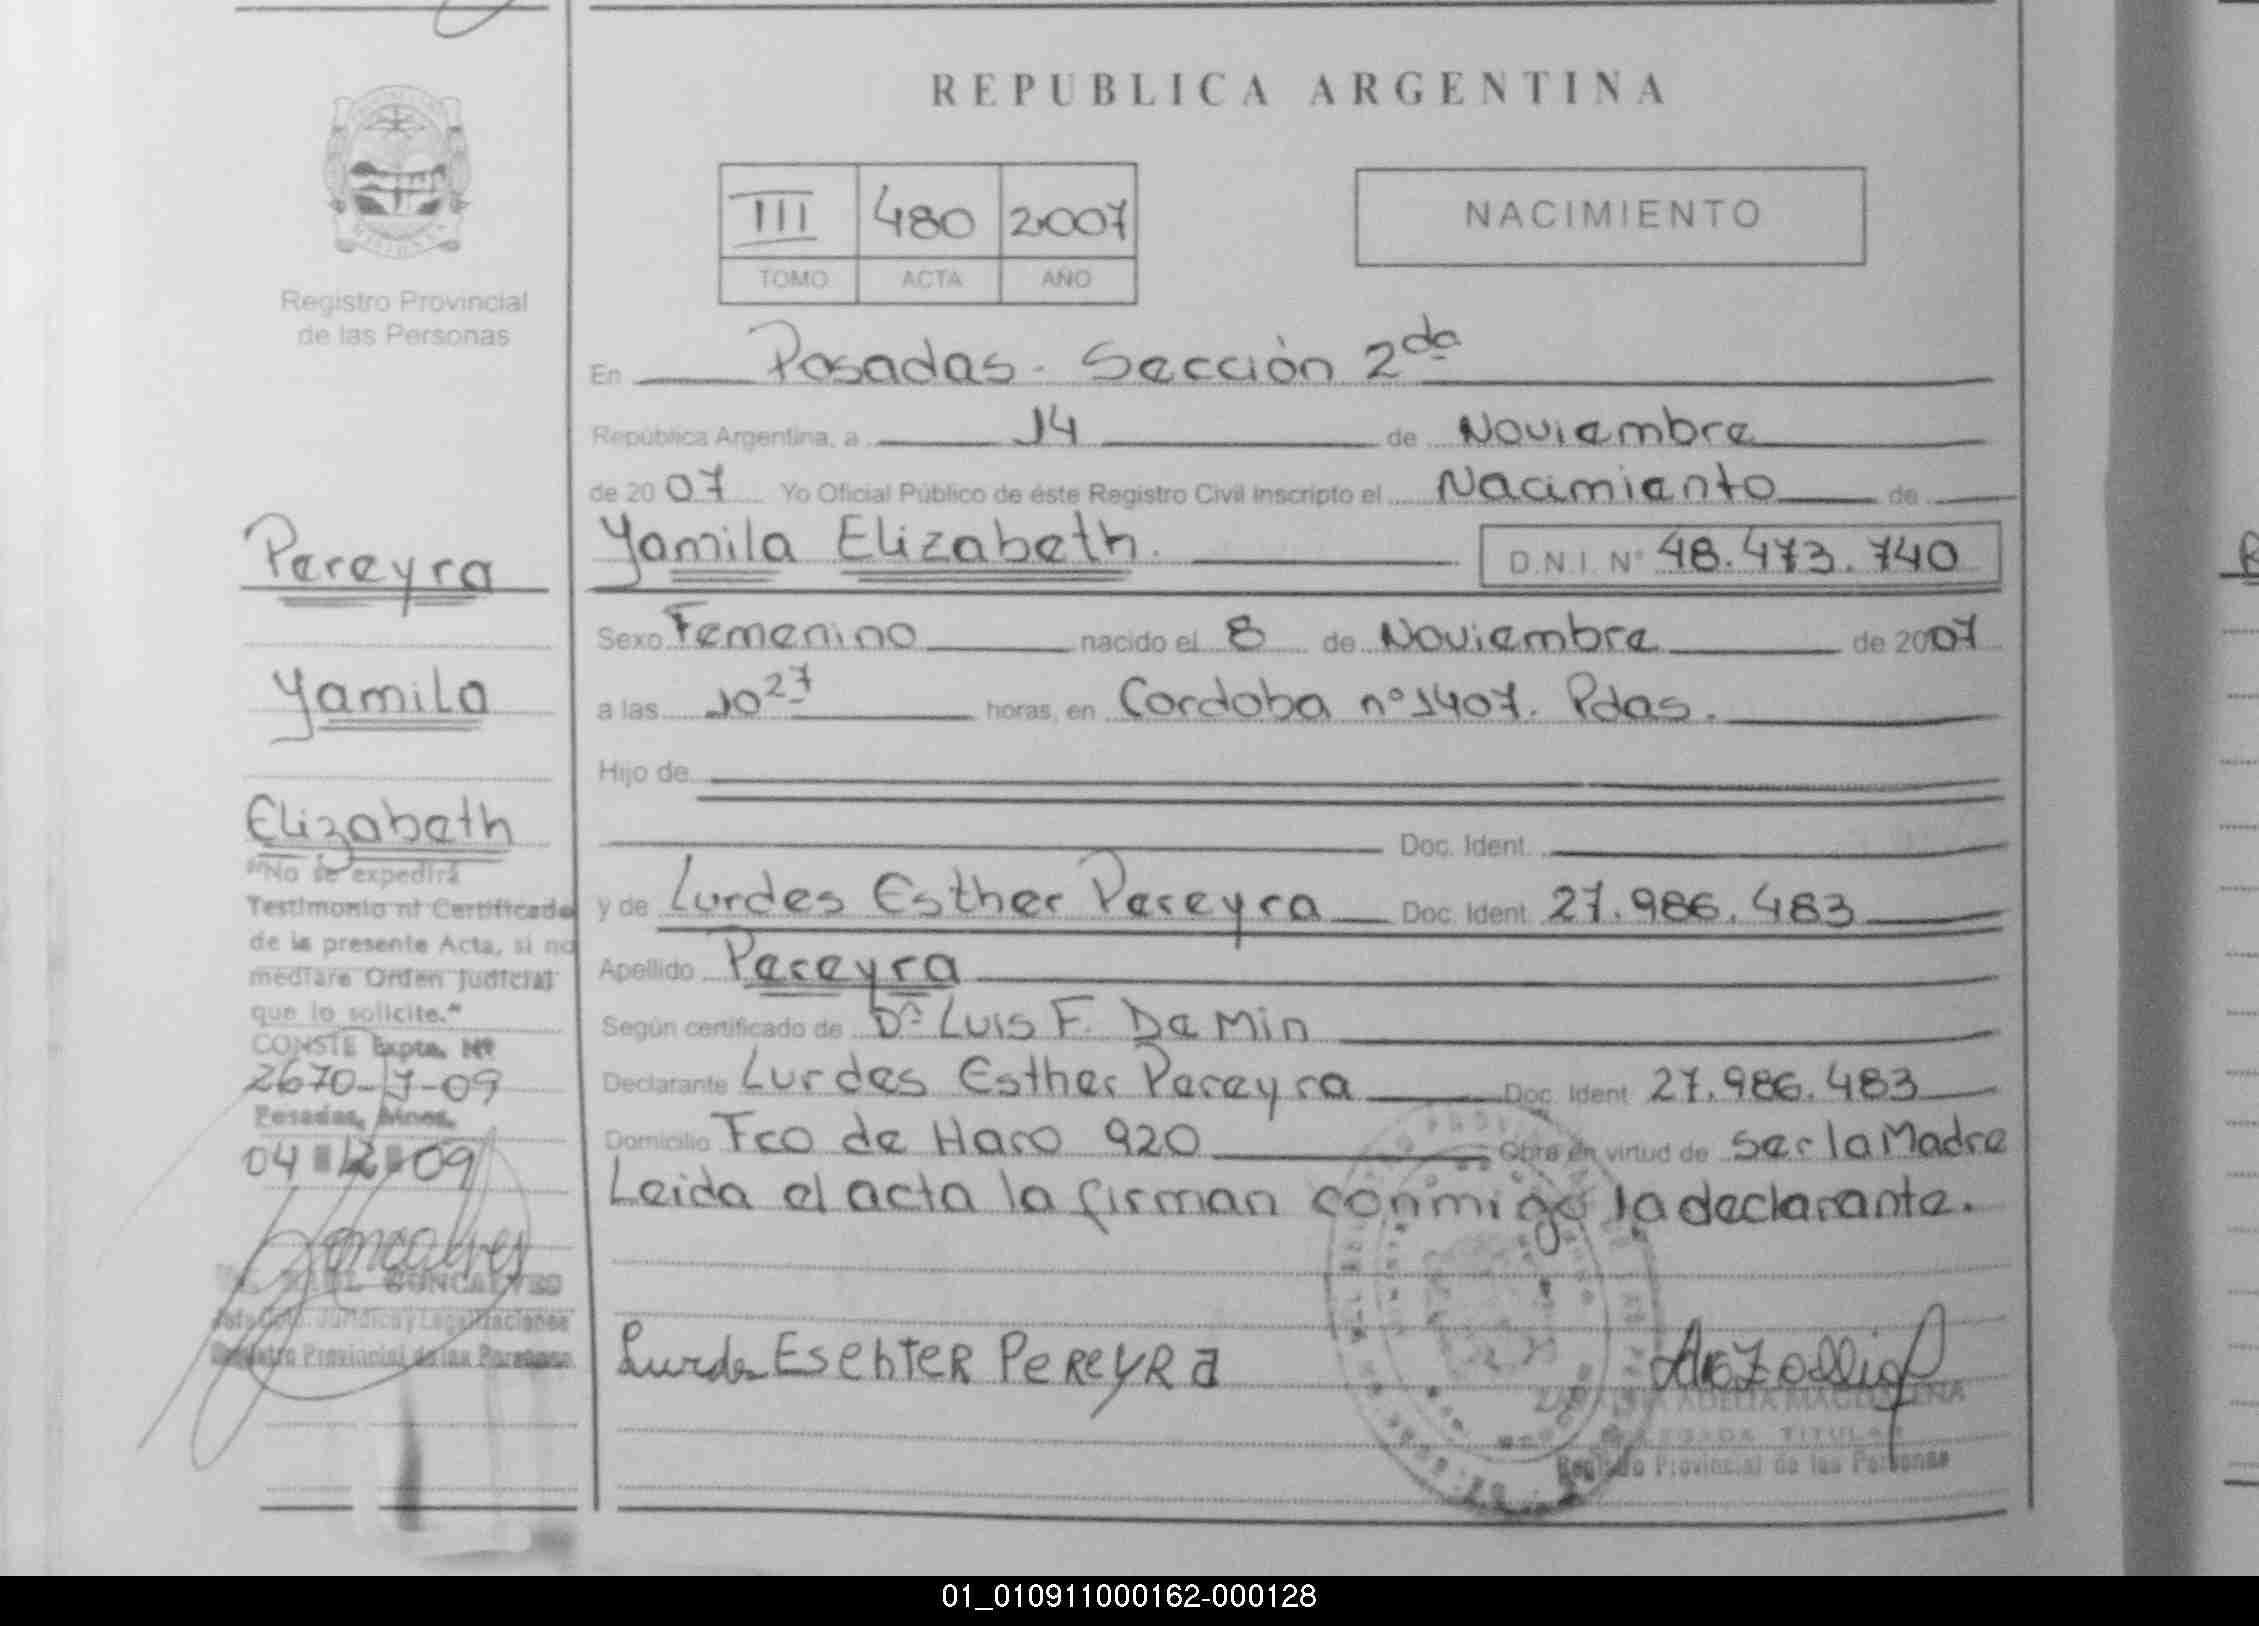 REPUBLICA ARGENTINA
Registro Provincial
de las Personas
III 480 2.007
TOMO ACTA AÑO
NACIMIENTO
En Posadas. Sección 2da
República Argentina, a 14 de Noviembre
de 2007 Yo Oficial Público de éste Registro Civil Inscripto el Nacimiento de
Yamila Elizabeth. D.N.I. Nº 48.473.740
Sexo Femenino nacido el 8 de Noviembre de 2007
a las 10 27 horas, en Cordoba nº 1407. Pdas.
Hijo de
Doc. Ident.
y de Lurdes Esther Pereyra Doc. Ident 27.986.483
Apellido Pereyra
Según certificado de Dr Luis F. De Min
Declarante Lurdes Esther Pereyra Doc. Ident 27.986.483
Domicilio Fco de Haro 920 Obra en virtud de ser la Madre
Leida el acta la firman conmigo la declarante.
Lurdes Esehter Pereyra
ADELIA MAGDALENA
DELEGADA TITULAR
Registro Provincial de las Personas
Pereyra
Yamila
Elizabeth
"No se expedirá
Testimonio ni Certificado
de la presente Acta, si no
mediare Orden Judicial
que lo solicite."
CONSTE Expte. Nº
2670-J-09
Posadas, Mnes.
04 12 09
Goncalves
GONCALVES
Jefe Dpto. Jurídico y Legalizaciones
Registro Provincial de las Personas
01_010911000162-000128